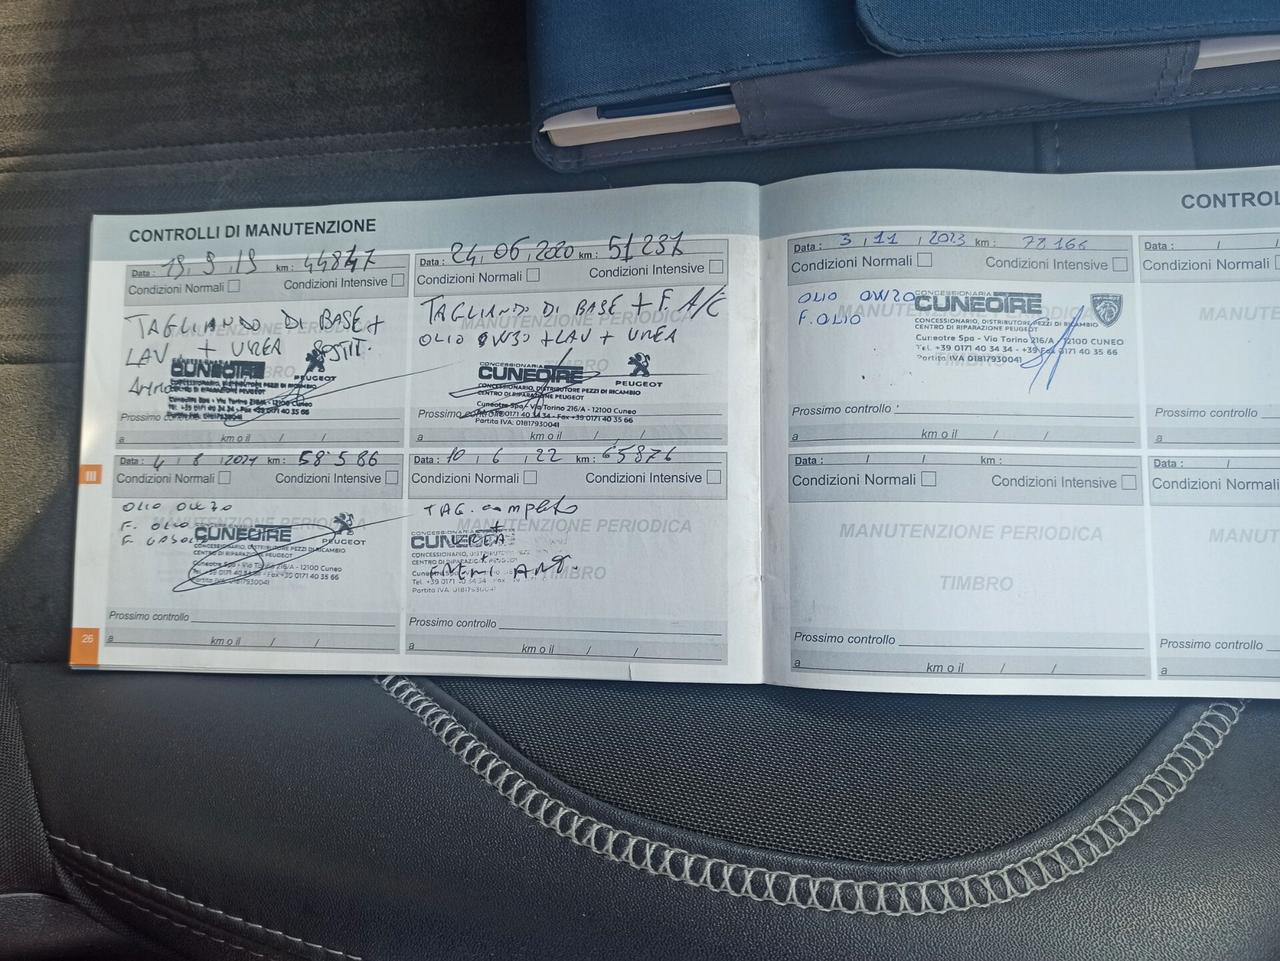 CONTROLLI DI MANUTENZIONE
Data: 19, 9, 19 km: 44847
Condizioni Normali Condizioni Intensive
TAGLIANDO DI BASE +
LAV + UREA SOSTIT.
CONCESSIONARIA
CUNEOTRE
PEUGEOT
CONCESSIONARIO, DISTRIBUTORE PEZZI DI RICAMBIO
CENTRO DI RIPARAZIONE PEUGEOT
Cuneotre Spa - Via Torino 216/A - 12100 Cuneo
Tel. +39 0171 40 34 34 - Fax +39 0171 40 35 66
Partita IVA: 01817930041
Prossimo controllo
a km o il / /
Data: 24, 06, 2020 km: 51237
Condizioni Normali Condizioni Intensive
MANUTENZIONE PERIODICA
TAGLIANDO DI BASE + F. A/C
OLIO 0W30 + LAV + UREA
CONCESSIONARIA
CUNEOTRE
PEUGEOT
CONCESSIONARIO, DISTRIBUTORE PEZZI DI RICAMBIO
CENTRO DI RIPARAZIONE PEUGEOT
Cuneotre Spa - Via Torino 216/A - 12100 Cuneo
Tel. +39 0171 40 34 34 - Fax +39 0171 40 35 66
Partita IVA: 01817930041
Prossimo controllo
a km o il / /
III
Data: 4, 8, 2021 km: 58586
Condizioni Normali Condizioni Intensive
MANUTENZIONE PERIODICA
OLIO 0W30
F. OLIO
F. GASOL
CONCESSIONARIA
CUNEOTRE
PEUGEOT
CONCESSIONARIO, DISTRIBUTORE PEZZI DI RICAMBIO
CENTRO DI RIPARAZIONE PEUGEOT
Cuneotre Spa - Via Torino 216/A - 12100 Cuneo
Tel. +39 0171 40 34 34 - Fax +39 0171 40 35 66
Partita IVA: 01817930041
Prossimo controllo
a km o il / /
26
Data: 10, 6, 22 km: 65876
Condizioni Normali Condizioni Intensive
MANUTENZIONE PERIODICA
TAG. completo
+
UREA
+
TIMBRO
CONCESSIONARIA
CUNEOTRE
Prossimo controllo
a km o il / /
CONTROL
Data: 3, 11, 2023 km: 72166
Condizioni Normali Condizioni Intensive
MANUTENZIONE PERIODICA
OLIO 0W30
F. OLIO
TIMBRO
CONCESSIONARIA
CUNEOTRE
CONCESSIONARIO, DISTRIBUTORE PEZZI DI RICAMBIO
CENTRO DI RIPARAZIONE PEUGEOT
Cuneotre Spa - Via Torino 216/A - 12100 CUNEO
Tel. +39 0171 40 34 34 - +39 Fax 0171 40 35 66
Partita IVA 01817930041
Prossimo controllo
a km o il / /
Data: / /
Condizioni Normali
MANUT
Prossimo control
a
Data: / / km:
Condizioni Normali Condizioni Intensive
MANUTENZIONE PERIODICA
TIMBRO
Prossimo controllo
a km o il / /
Data: /
Condizioni Normali
MANUT
Prossimo control
a